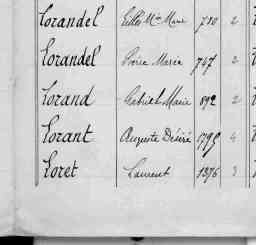 Corandel Gilles Mie Marie 710 2
Corandel Marie 747 2
Corand Gabriel Marie 892 2
Corant Auguste Désiré 1795 4
Coret Laurent 1376 3